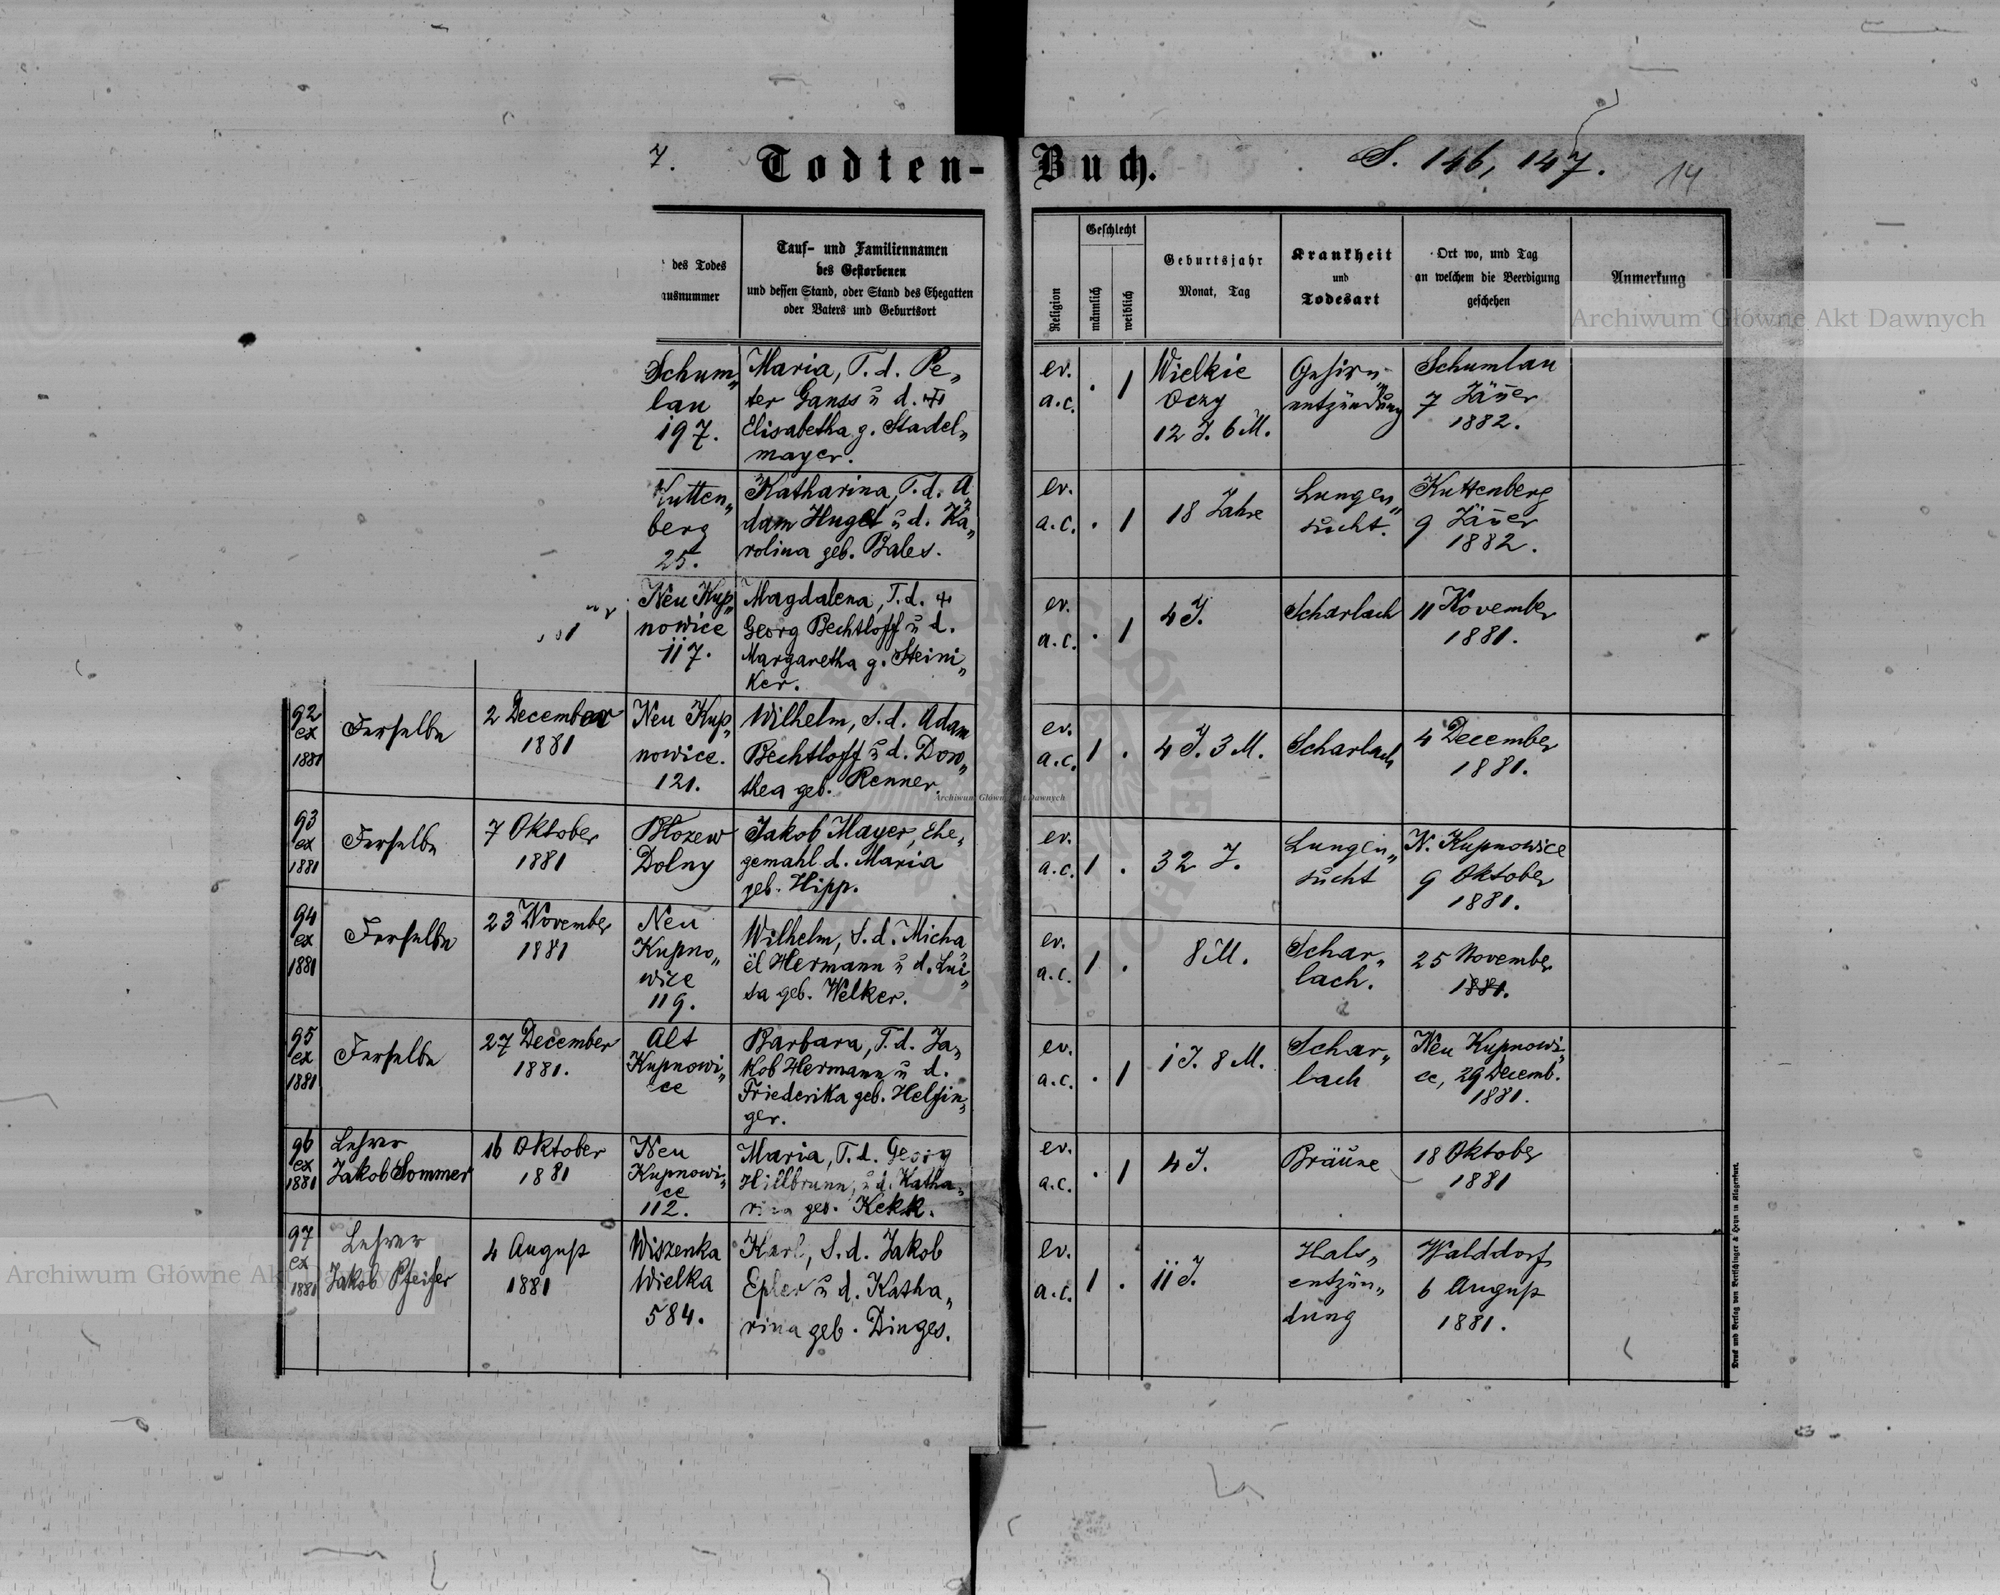 7. Todten-Buch. S. 146, 147. 14
des Todes
ausnummer
Tauf- und Familiennamen
des Gestorbenen
und dessen Stand, oder Stand des Ehegatten
oder Vaters und Geburtsort
Religion
Geschlecht
männlich
weiblich
Geburtsjahr
Monat, Tag
Krankheit
und
Todesart
Ort wo, und Tag
an welchem die Beerdigung
geschehen
Anmerkung
Schum„
lau
197.
Maria, T. d. Pe„
ter Ganss u d. +
Elisabetha g. Stadel„
mayer.
ev.
a.c.
. 1
Wielkie
Oczy
12 J. 6 M.
Gehirn„
entzündung
Schumlau
7 Jäner
1882.
Kutten„
berg
25.
Katharina, T. d. A„
dam Hugel u d. Ka„
rolina geb. Bales.
ev.
a.c.
. 1
18 Jahre
Lungen„
sucht.
Kuttenberg
9 Jäner
1882.
Neu Kup„
nowice
117.
Magdalena, T. d. +
Georg Bechtloff u d.
Margaretha g. Steini„
ker.
ev.
a.c.
. 1
4 J.
Scharlach
11 November
1881.
92
ex
1881
Derselbe
2 December
1881
Neu Kup„
nowice.
121.
Wilhelm, S. d. Adam
Bechtloff u d. Doro„
thea geb. Renner.
ev.
a.c.
1 .
4 J. 3 M.
Scharlach
4 December
1881.
93
ex
1881
Derselbe
7 Oktober
1881
Błozew
Dolny
Jakob Mayer, Ehe„
gemahl d. Maria
geb. Hipp.
ev.
a.c.
1 .
32 J.
Lungen„
sucht
N. Kupnowice
9 Oktober
1881.
94
ex
1881
Derselbe
23 November
1881
Neu
Kupno„
wice
119.
Wilhelm, S. d. Micha„
ël Hermann u d. Lui„
sa geb. Welker.
ev.
a.c.
1 .
8 M.
Schar„
lach.
25 November
1881.
95
ex
1881
Derselbe
27 December
1881.
Alt
Kupnowi„
ce
Barbara, T. d. Ja„
kob Hermann u d.
Friederika geb. Helfin„
ger.
ev.
a.c.
. 1
1 J. 8 M.
Schar„
lach
Neu Kupnowi„
ce, 29 Decemb.
1881.
96
ex
1881
Lehrer
Jakob Sommer
16 Oktober
1881
Neu
Kupnowi„
ce
112.
Maria, T. d. Georg
Hillbrunn, u d. Katha„
rina geb. Kekk.
ev.
a.c.
. 1
4 J.
Bräune
18 Oktober
1881
97
ex
1881
Lehrer
Jakob Pfeifer
4 August
1881
Wiszenka
Wielka
584.
Karl, S. d. Jakob
Epler u d. Katha„
rina geb. Dinges.
ev.
a.c.
1 .
11 J.
Hals„
entzün„
dung
Walddorf
6 August
1881.
Druck und Verlag von Bertschinger & Heyn in Klagenfurt.
Archiwum Główne Akt Dawnych
Archiwum Główne Akt Dawnych